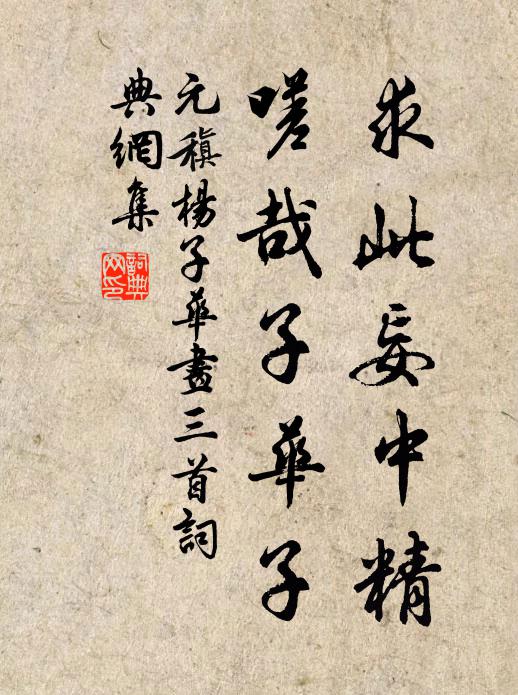 求此妄中精
嗟哉子華子
元稹楊子華畫三首詞
典網集
詞典
网印